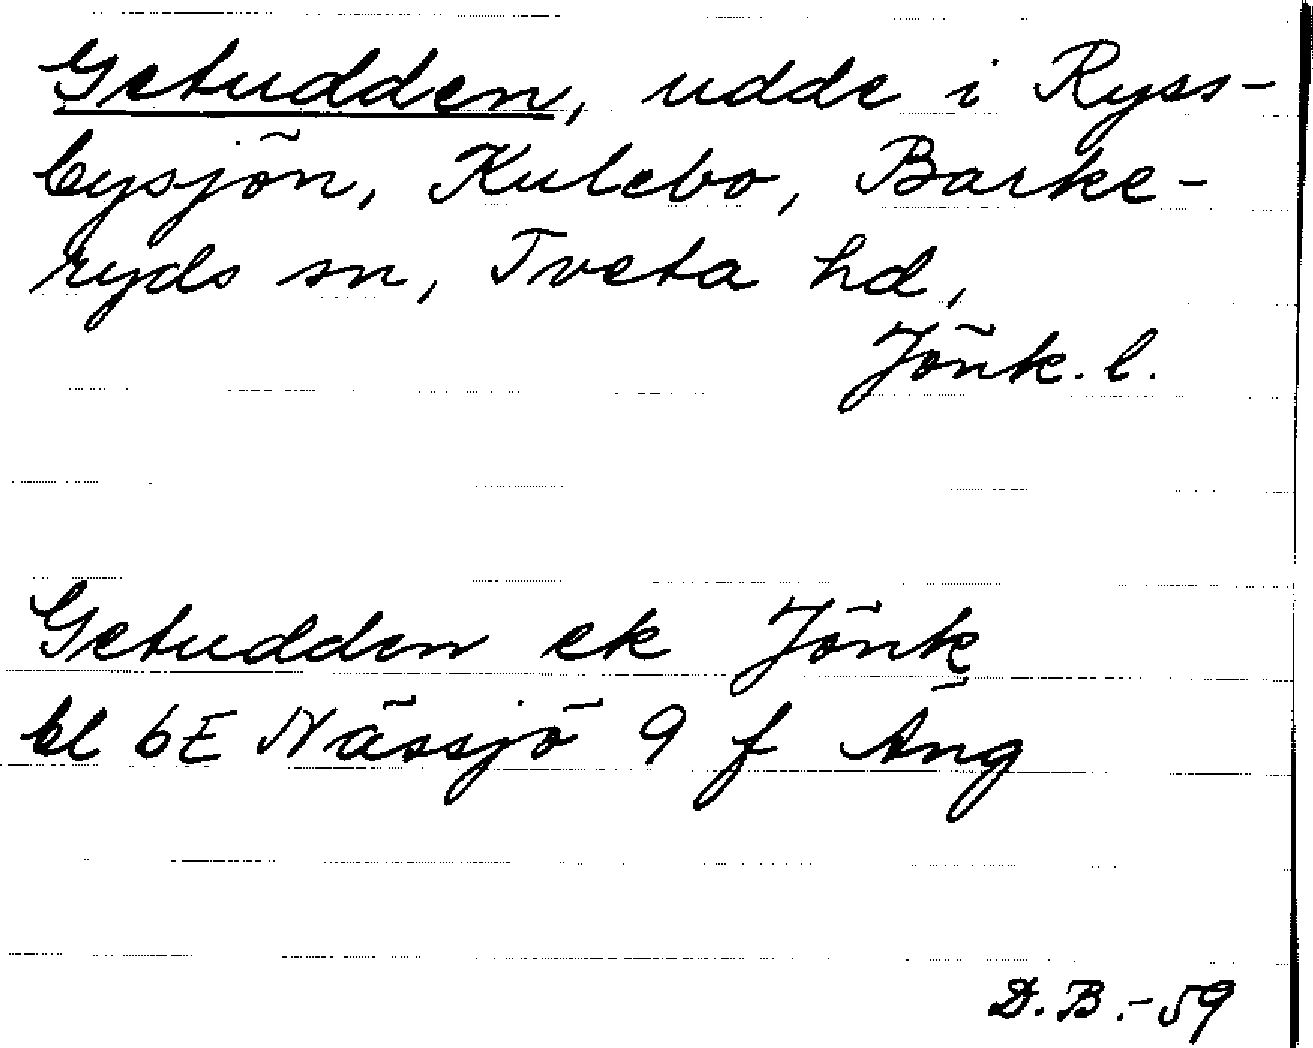 Getudden, udde i Ryss-
bysjön, Kulebo, Barke-
ryds sn, Tveta hd,
Jönk. l.
Getudden ek Jönk
bl 6E Nässjö 9 f Ang
D.B.-59